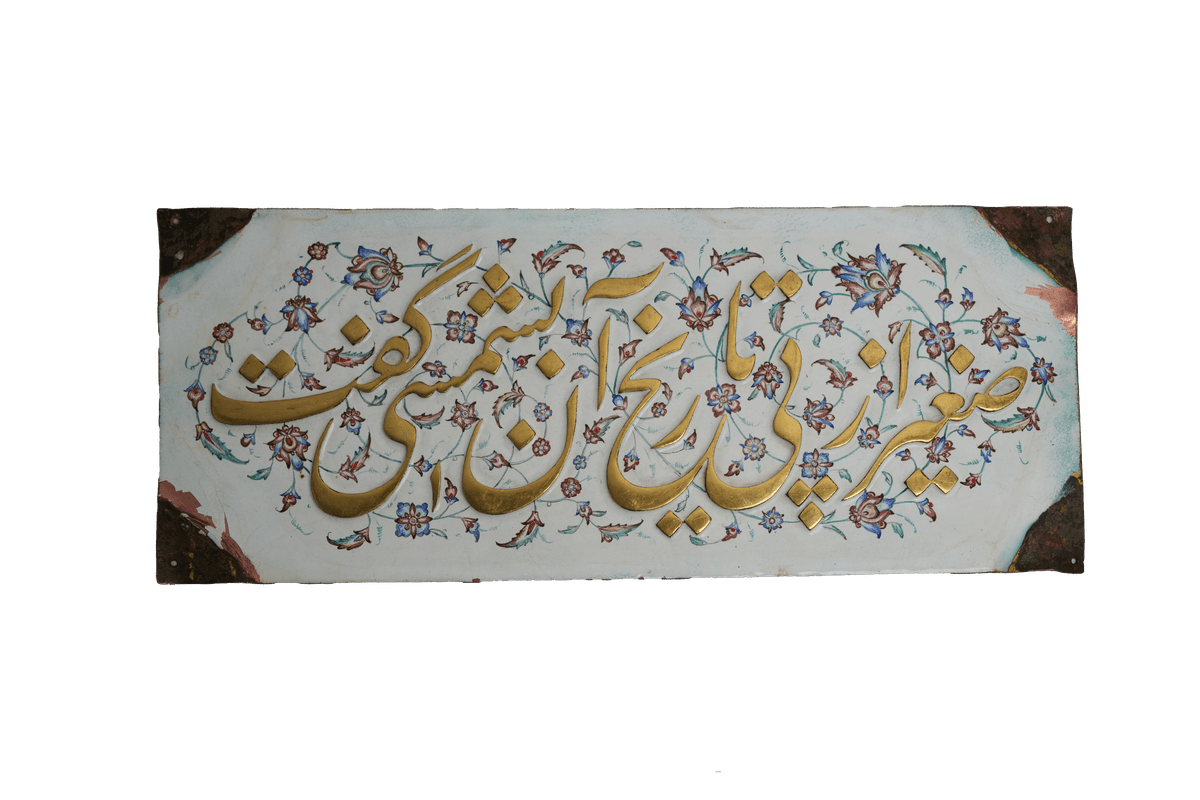 صغیر از پی تاریخ آن بشمسی گفت